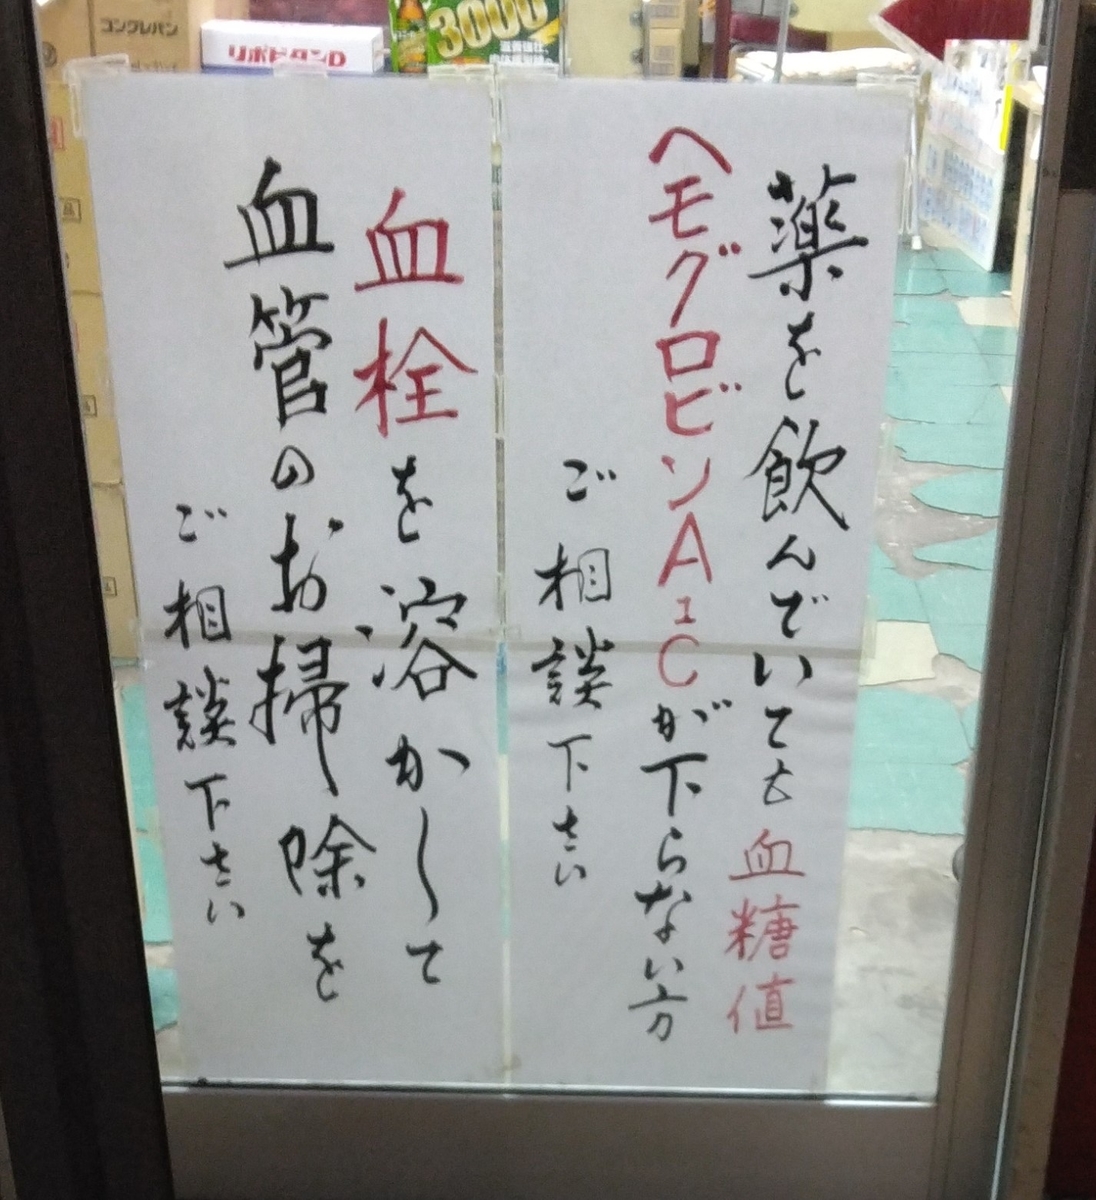 コングレバン
リポビタンD
3000
薬を飲んでいても血糖値
ヘモグロビンA1Cが下らない方
ご相談下さい
血栓を溶かして
血管のお掃除を
ご相談下さい